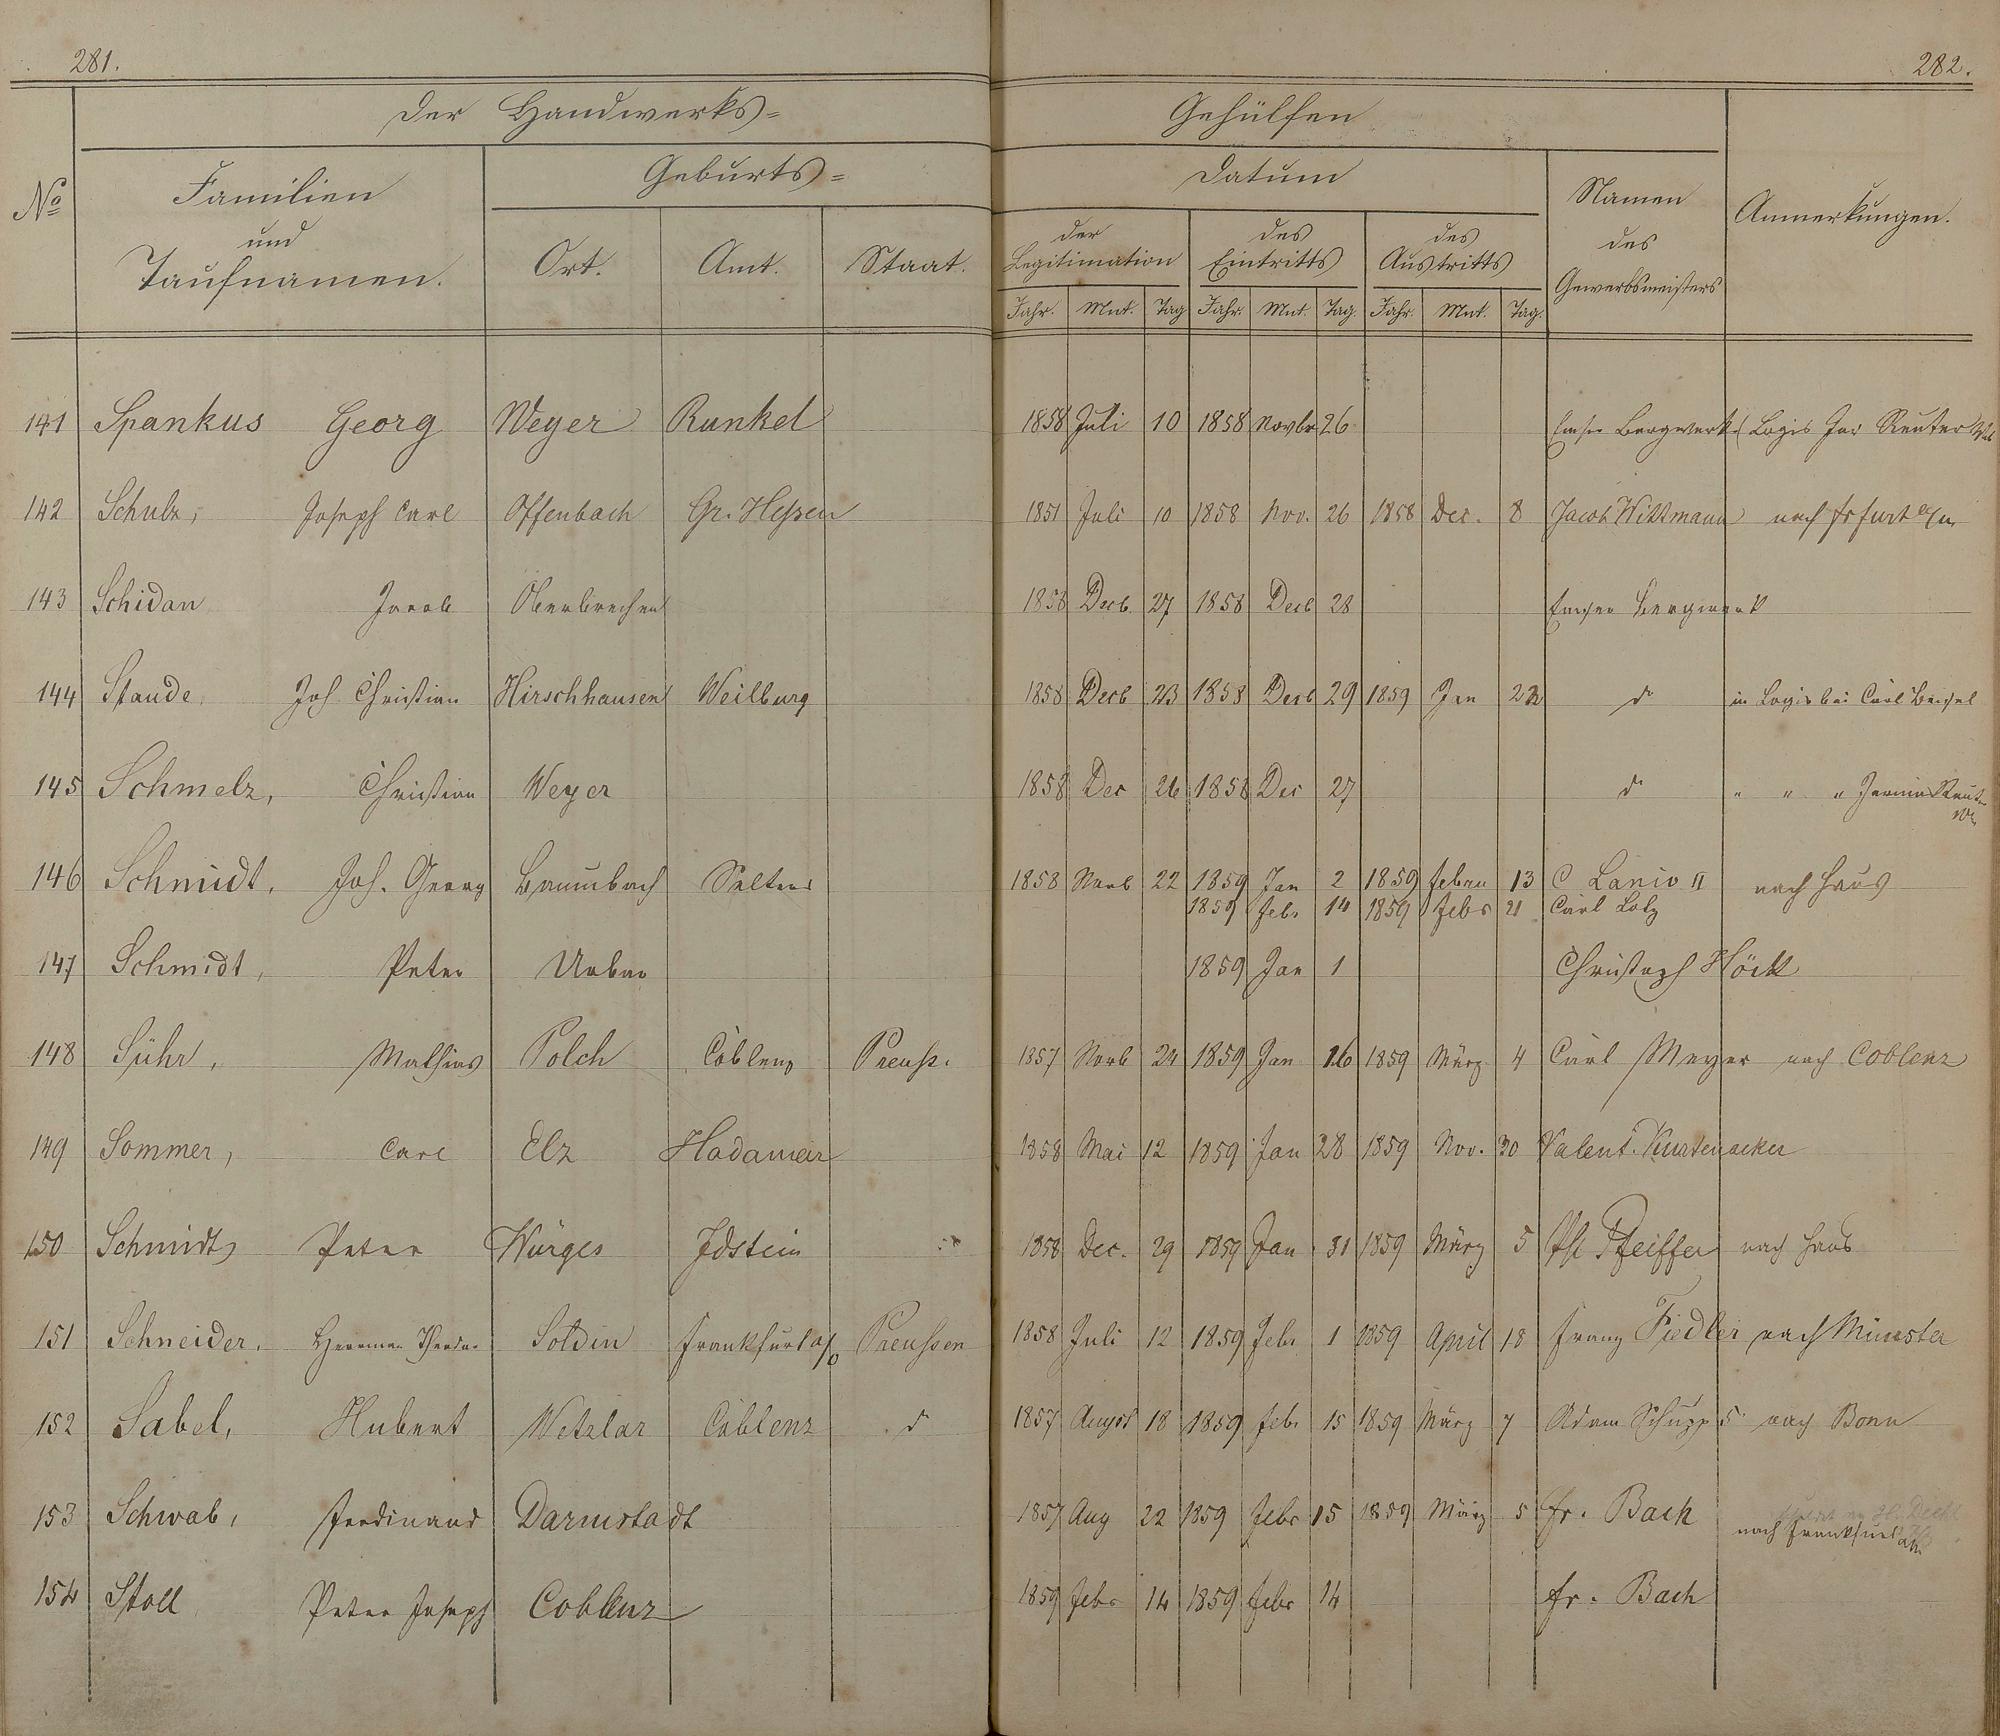 281.
282.
Der Handwerks=
Gehülfen
No
Familien
und
Taufnamen.
Geburts=
Ort.
Amt.
Staat.
Datum
der
Legitimation
des
Eintritts
des
Austritts
Jahr. Mnt. Tag Jahr. Mnt. Tag. Jahr. Mnt. Tag.
Namen
des
Gewerbsmeisters
Anmerkungen.
141 Spankus Georg Weyer Runkel 1858 Juli 10 1858 Novbr 26 Emser Bergwerk Logis Reuter
142 Schulz, Joseph Carl Offenbach Gr. Hessen 1851 Juli 10 1858 Nov. 26 1858 Dec. 8 Jacob Wittmann nach
143 Schidan Jacob Oberbrechen 1858 Decb. 27 1858 Decb 28 Emser Bergwerk
144 Staude, Joh Christian Hirschhausen Weilburg 1858 Decb 23 1858 Decb 29 1859 Jan 22 do in Logis bei Carl
145 Schmelz, Christian Weyer 1858 Dec 26 1858 Dec 27 do " " "
146 Schmidt, Joh. Georg Baumbach Selters 1858 Novb 22 1859 Jan 2 1859 Febru 13 C Lanio II nach Haus
1859 Febr 14 1859 Febr 21 Carl Lotz
147 Schmidt, Peter Urbar 1859 Jan 1 Christoph Höck
148 Sühr, Mathias Polch Coblenz Preuss. 1857 Novb 24 1859 Jan 16 1859 März 4 Carl Meyer nach Coblenz
149 Sommer, Carl Elz Hadamar 1858 Mai 12 1859 Jan 28 1859 Nov. 30 Valent. Kurtenacker
150 Schmidt Peter Würges Idstein 1858 Dec. 29 1859 Jan 31 1859 März 5 Ph Pfeiffer nach Haus
151 Schneider, Herrman Theodor Soldin Frankfurt a/o Preussen 1858 Juli 12 1859 Febr 1 1859 April 18 Franz Fiedler nach Münster
152 Sabel, Hubert Wetzlar Coblenz do 1857 August 18 1859 Febr 15 1859 März 7 Adam Schupp nach Bonn
153 Schwab, Ferdinand Darmstadt 1857 Aug 22 1859 Febr 15 1859 März 5 Fr. Bach
nach Frankfurt a/m
154 Stoll Peter Joseph Coblenz 1859 Febr 14 1859 Febr 14 Fr. Bach